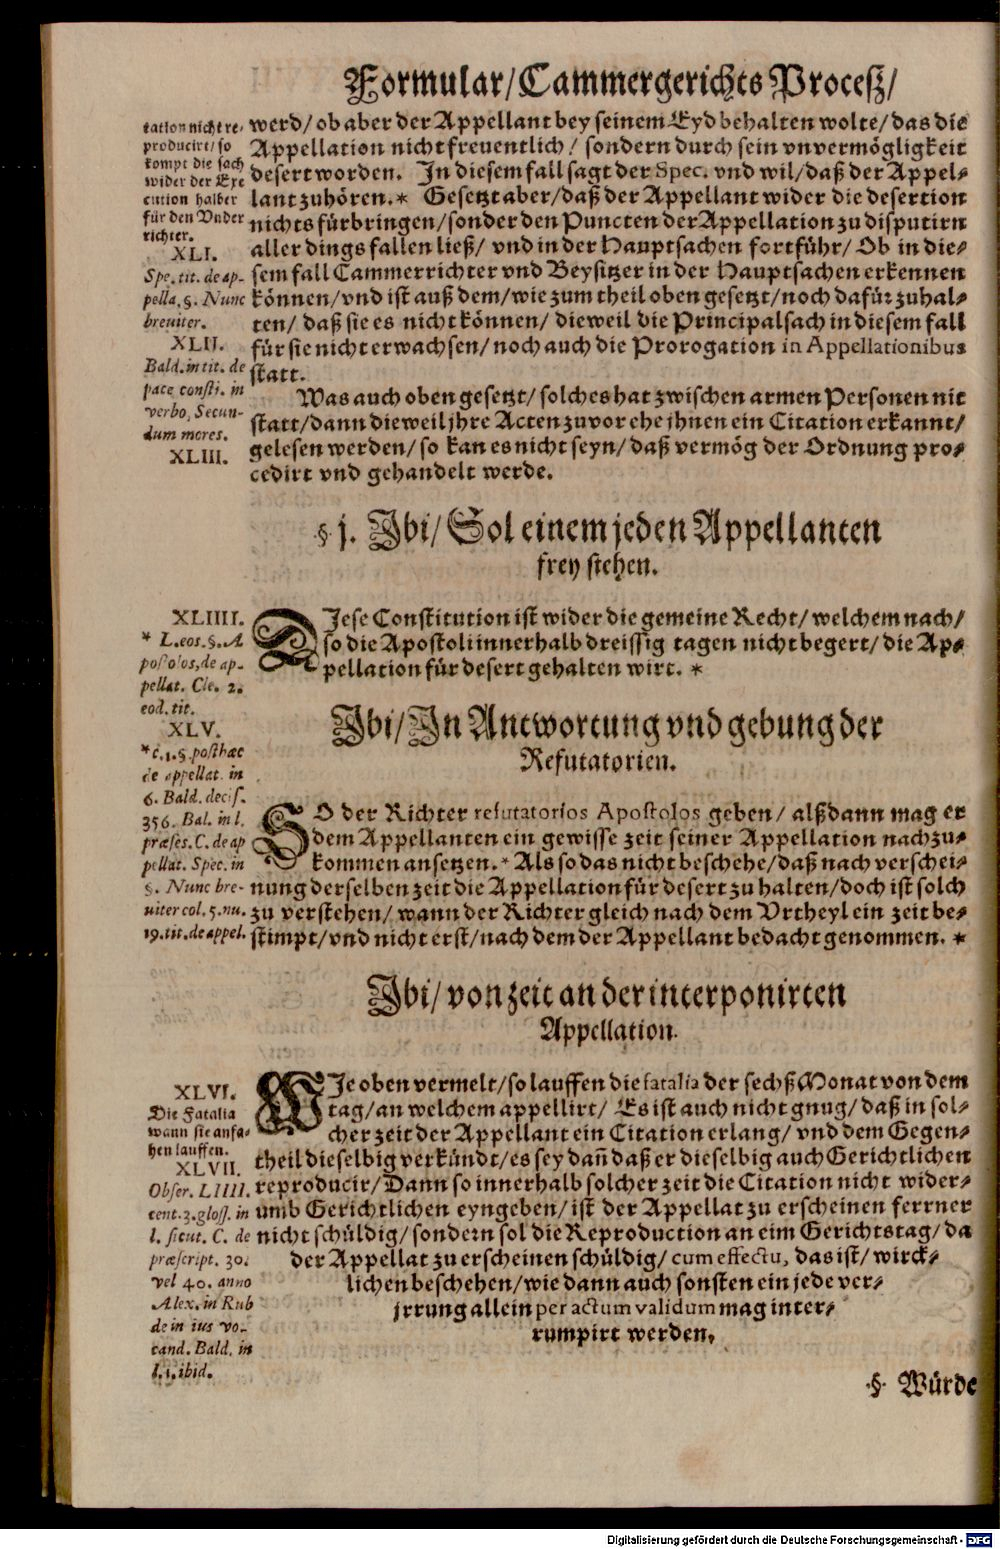 Formular/Cammergerichts Proceß/
werd/ob aber der Appellant bey seinem Eyd behalten wolte/das die
Appellation nicht freuentlich/ sondern durch sein vnvermögligkeit
desert worden. In diesem fall sagt der Spec. vnd wil/daß der Appel-
lant zuhören.* Gesetzt aber/daß der Appellant wider die desertion
nichts fürbringen/sonder den Puncten der Appellation zu disputirn
aller dings fallen ließ/ vnd in der Hauptsachen fortführ/ Ob in die-
sem fall Cammerrichter vnd Beysitzer in der Hauptsachen erkennen
können/vnd ist auß dem/wie zum theil oben gesetzt/noch dafür zuhal-
ten/ daß sie es nicht können/ dieweil die Principalsach in diesem fall
für sie nicht erwachsen/noch auch die Prorogation in Appellationibus
statt.
Was auch oben gesetzt/ solches hat zwischen armen Personen nit
statt/dann dieweil jhre Acten zuvor ehe jhnen ein Citation erkannt/
gelesen werden/ so kan es nicht seyn/ daß vermög der Ordnung pro-
cedirt vnd gehandelt werde.
tation nicht re-
producirt/so
kompt die sach
wider der Exe
cution halber
für den Vnder
richter.
XLI.
Spe. tit. de ap-
pella. §. Nunc
breuiter.
XLII.
Bald. in tit. de
pace consti. in
verbo, Secun-
dum mores.
XLIII.
§ j. Ibi/ Sol einem jeden Appellanten
frey stehen.
DIese Constitution ist wider die gemeine Recht/ welchem nach/
so die Apostoli innerhalb dreissig tagen nicht begert/ die Ap-
pellation für desert gehalten wirt. *
XLIIII.
* L. eos. §. A
postolos, de ap-
pellat. Cle. 2.
eod. tit.
XLV.
* c. 1. §. posthæc
de appellat. in
6. Bald. decis.
356. Bal. in l.
præses. C. de ap
pellat. Spec. in
§. Nunc bre-
uiter col. 5. nu.
19. tit. de appel.
Ibi/ In Antwortung vnd gebung der
Refutatorien.
SO der Richter refutatorios Apostolos geben/ alßdann mag er
dem Appellanten ein gewisse zeit seiner Appellation nachzu-
kommen ansetzen.* Als so das nicht beschehe/daß nach verschei-
nung derselben zeit die Appellation für desert zu halten/doch ist solch
zu verstehen/ wann der Richter gleich nach dem Vrtheyl ein zeit be-
stimpt/vnd nicht erst/nach dem der Appellant bedacht genommen. *
Ibi/ von zeit an der interponirten
Appellation.
WIe oben vermelt/so lauffen die fatalia der sechß Monat von dem
tag/an welchem appellirt/ Es ist auch nicht gnug/ daß in sol-
cher zeit der Appellant ein Citation erlang/ vnd dem Gegen-
theil dieselbig verkündt/es sey dañ daß er dieselbig auch Gerichtlichen
reproducir/Dann so innerhalb solcher zeit die Citation nicht wider-
umb Gerichtlichen eyngeben/ist der Appellat zu erscheinen ferrner
nicht schüldig/sondern sol die Reproduction an eim Gerichtstag/da
der Appellat zu erscheinen schüldig/ cum effectu, das ist/ wirck-
lichen beschehen/wie dann auch sonsten ein jede ver-
jrrung allein per actum validum mag inter-
rumpirt werden,
XLVI.
Die Fatalia
wann sie anfa-
hen lauffen.
XLVII.
Obser. LIIII.
cent. 3. gloss. in
l. sicut. C. de
præscript. 30.
vel 40. anno
Alex. in Rub
de in ius vo-
cand. Bald. in
l. 1. ibid.
§ Würde
Digitalisierung gefördert durch die Deutsche Forschungsgemeinschaft - DFG